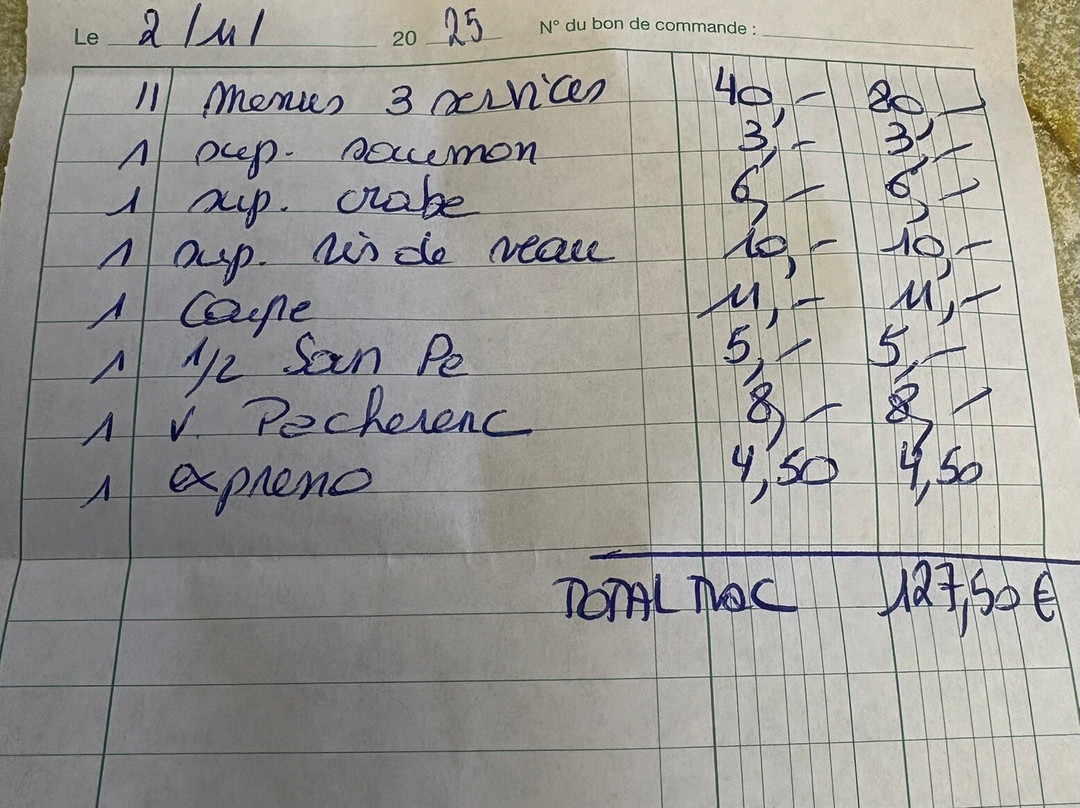 Le 2/11/ 2025 N° du bon de commande :
11 Menus 3 services 40,- 80,-
1 sup. saumon 3,- 3,-
1 sup. crabe 6,- 6,-
1 sup. ris de veau 10,- 10,-
1 Coupe 11,- 11,-
1 1/2 San Pe 5,- 5,-
1 v. Pacherenc 8,- 8,-
1 expresso 4,50 4,50
TOTAL TVAC 127,50 €